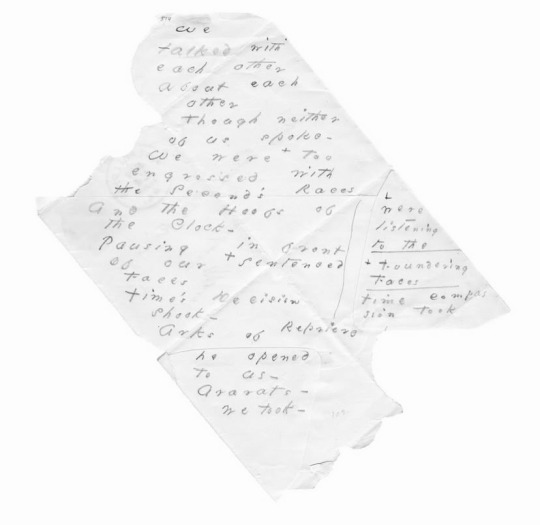 We
talked with
each other
about each
other
though neither
of us spoke -
We were + too
engrossed with
the Second's Races
And the Hoofs of
the Clock -
Pausing in front
of our + sentenced
Faces
Time's Decision
shook -
Arks of Reprieve
he opened
to us -
Ararats -
we took -
were
listening
to the
+ foundering
Faces
time compas
sion took